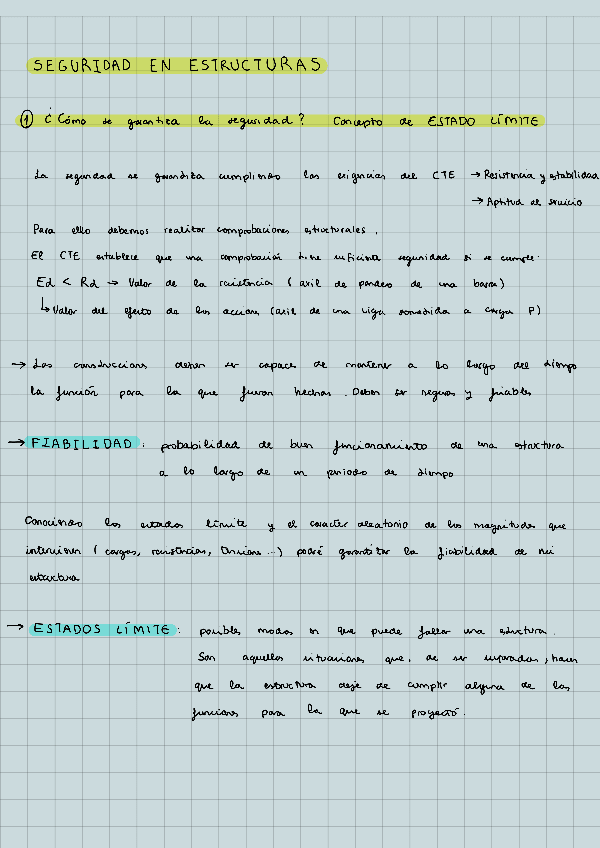 SEGURIDAD EN ESTRUCTURAS
① ¿Cómo se garantiza la seguridad? Concepto de ESTADO LÍMITE
La seguridad se garantiza cumpliendo las exigencias del CTE → Resistencia y estabilidad
→ Aptitud al servicio
Para ello debemos realizar comprobaciones estructurales.
El CTE establece que una comprobación tiene suficiente seguridad si se cumple:
Ed < Rd → Valor de la resistencia (axil de pandeo de una barra)
↳ Valor del efecto de las acciones (axil de una viga sometida a carga P)
→ Las construcciones deben ser capaces de mantener a lo largo del tiempo
la función para la que fueron hechas. Deben ser seguras y fiables
→ FIABILIDAD: probabilidad de buen funcionamiento de una estructura
a lo largo de un periodo de tiempo
Conociendo los estados límite y el carácter aleatorio de las magnitudes que
intervienen (cargas, resistencias, tensiones...) podré garantizar la fiabilidad de mi
estructura
→ ESTADOS LÍMITE: posibles modos en que puede fallar una estructura.
Son aquellas situaciones que, de ser superadas, hacen
que la estructura deje de cumplir alguna de las
funciones para la que se proyectó.